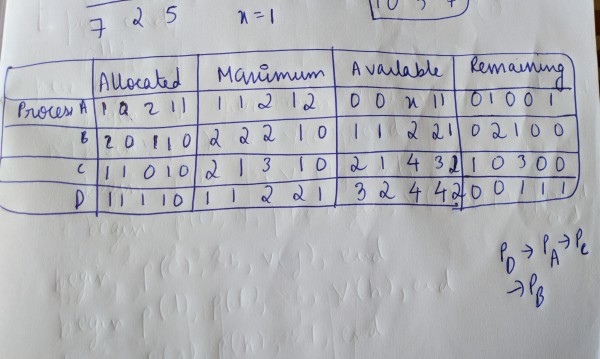 7 2 5 x=1
Allocated Maximum Available Remaining
Process A 1 0 2 1 1 1 1 2 1 2 0 0 x 1 1 0 1 0 0 1
B 2 0 1 1 0 2 2 2 1 0 1 1 2 2 1 0 2 1 0 0
C 1 1 0 1 0 2 1 3 1 0 2 1 4 3 1 0 3 0 0
D 1 1 1 1 0 1 1 2 2 1 3 2 4 4 2 0 0 1 1 1
P_D → P_A → P_C
→ P_B